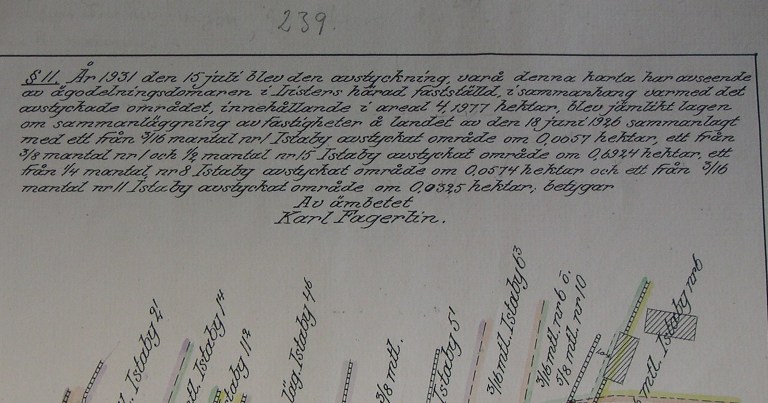 239.
§ 11. År 1931 den 15 juli blev den avstyckning, varå denna karta har avseende
av ägodelningsdomaren i Listers härad fastställd, i sammanhang varmed det
avstyckade området, innehållande i areal 4,1977 hektar, blev jämlikt lagen
om sammanläggning av fastigheter å landet av den 18 juni 1926 sammanlagt
med ett från 3/16 mantal nr 1 Istaby avstyckat område om 0,0057 hektar, ett från
3/8 mantal nr 1 och 1/2 mantal nr 15 Istaby avstyckat område om 0,6924 hektar, ett
från 1/4 mantal nr 8 Istaby avstyckat område om 0,0574 hektar och ett från 3/16
mantal nr 11 Istaby avstyckat område om 0,0325 hektar; betygar
Av ämbetet
Karl Fagerlin.
Istaby 2¹
tl. Istaby 1⁴
staby 11²
Istaby 4⁶
3/8 mtl.
Istaby 5¹
3/16 mtl. Istaby 6³
3/16 mtl. nr 6 ö.
5/8 mtl. nr 10
mtl. Istaby nr 6